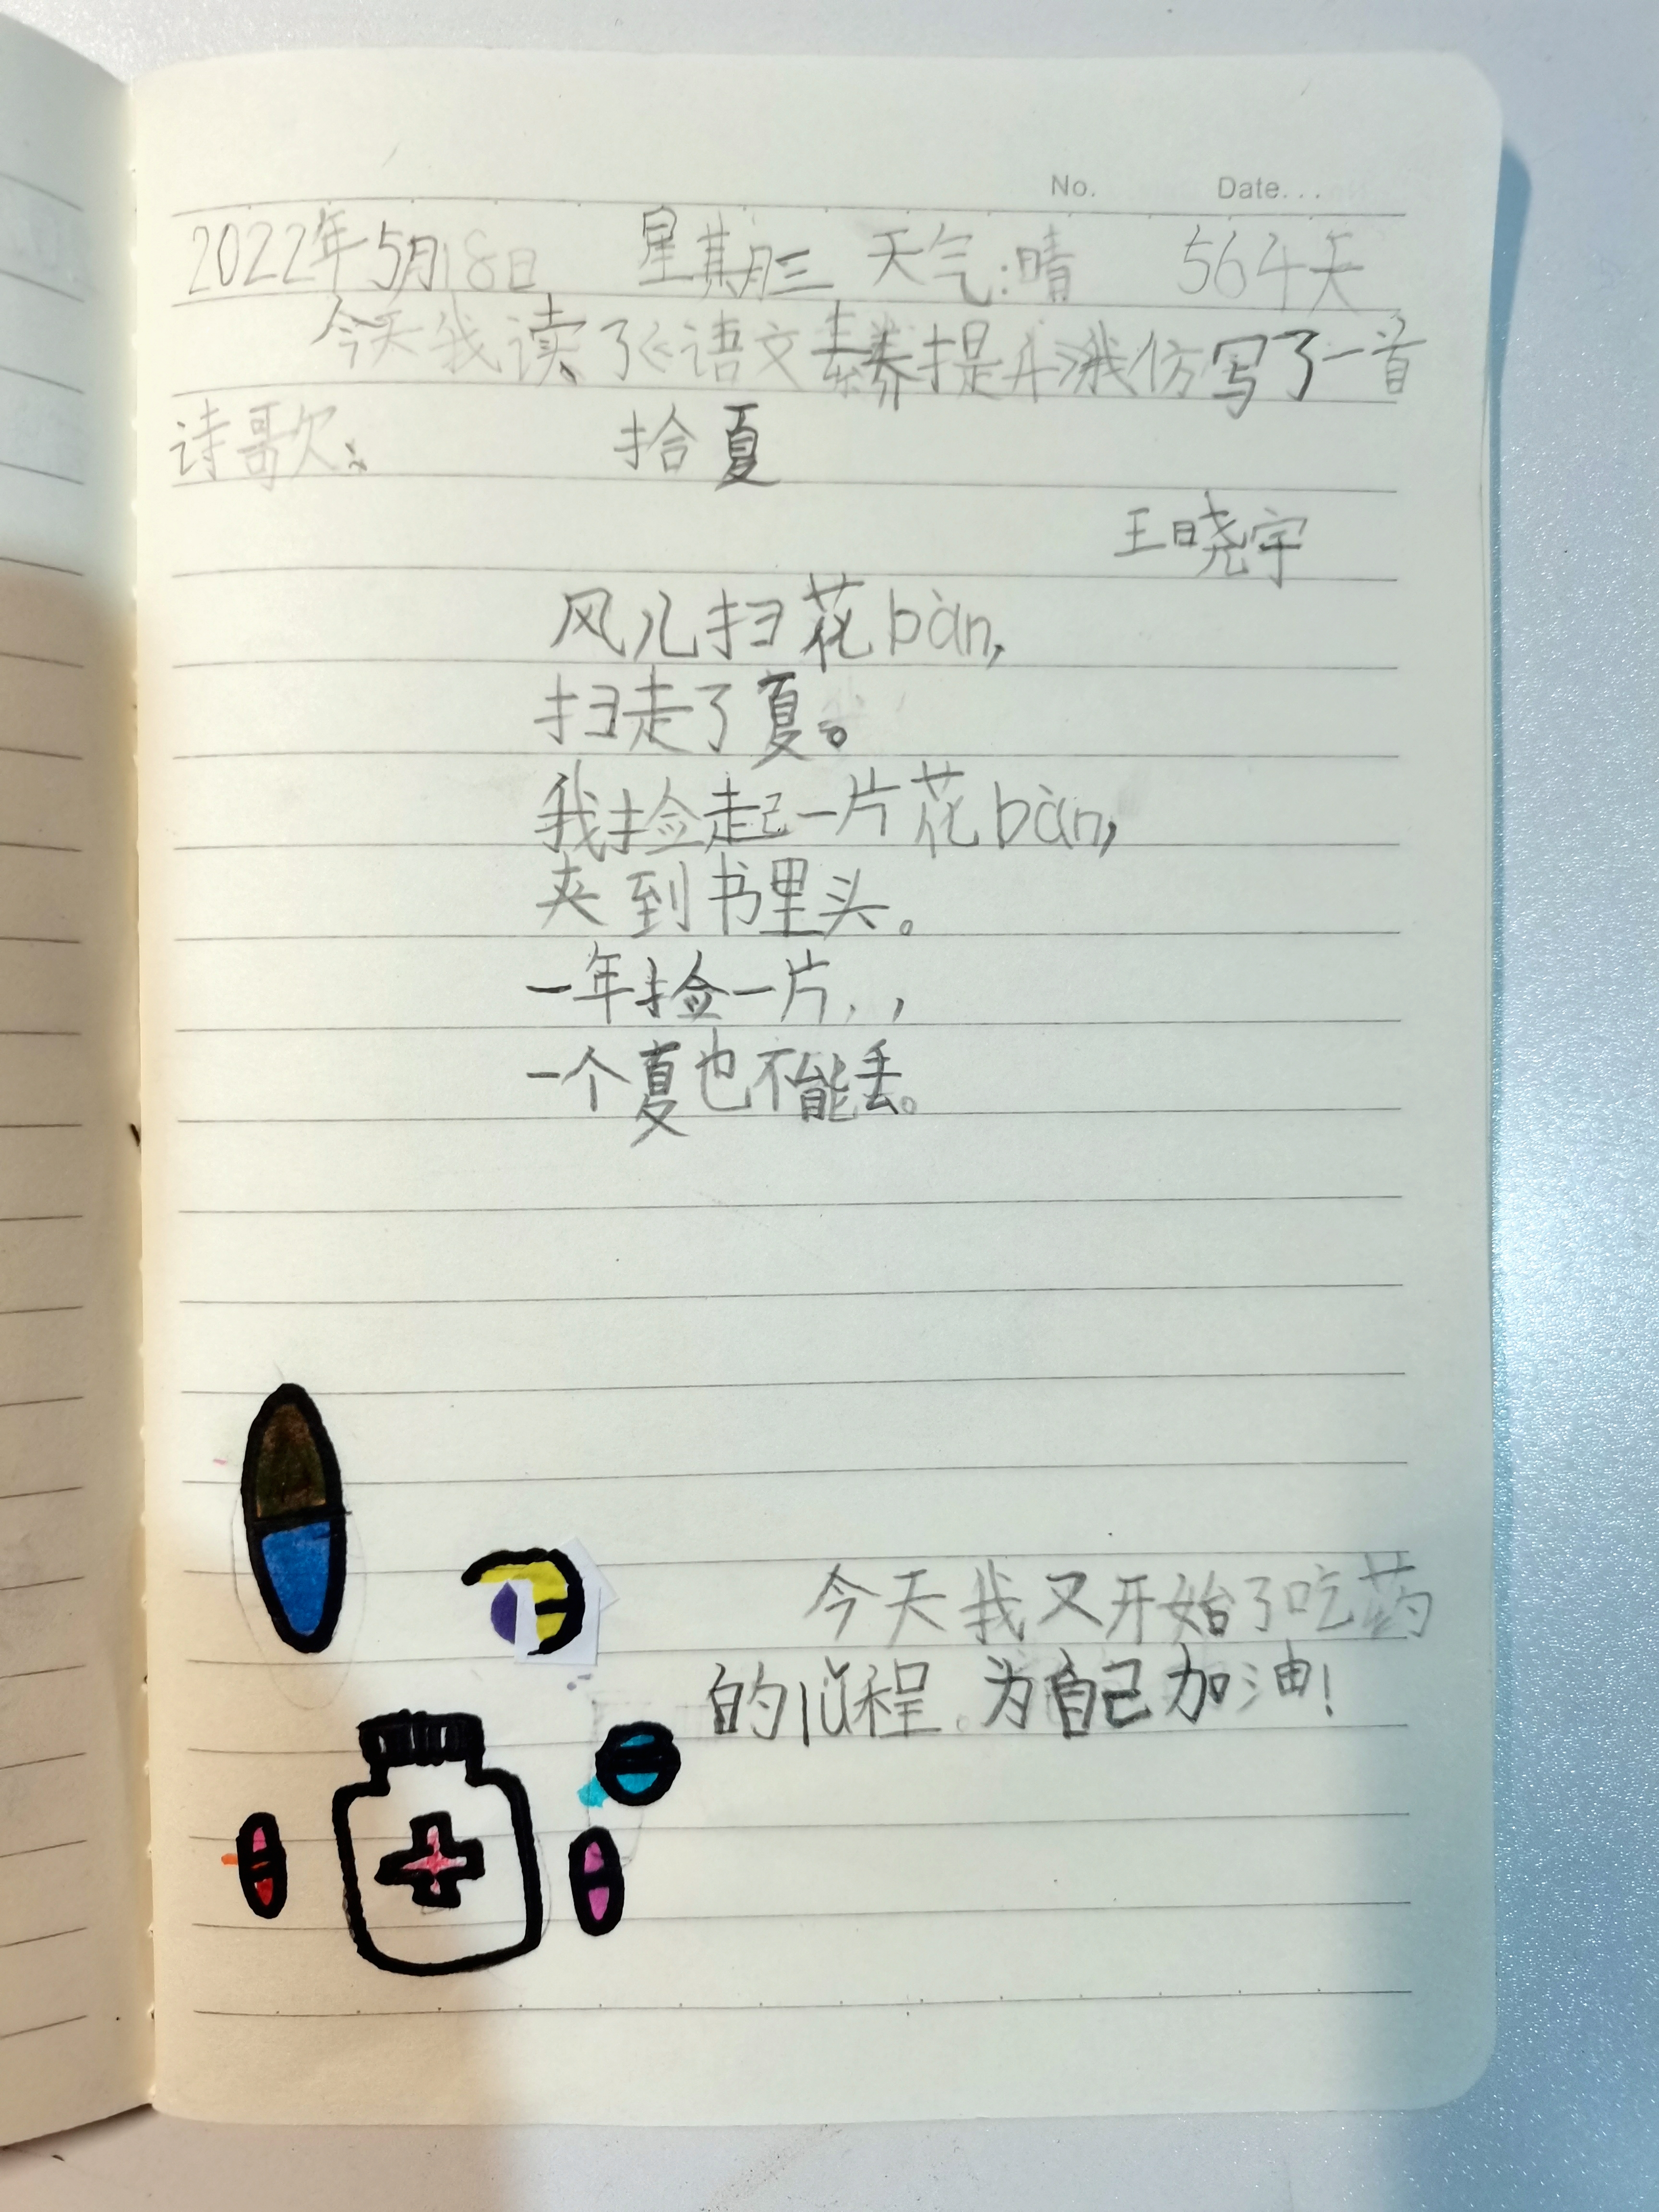 No. Date...
2022年5月18日 星期三 天气:晴 564天
今天我读了《语文素养提升》我仿写了一首
诗歌:
拾夏
王晓宇
风儿扫花bàn,
扫走了夏。
我捡起一片花bàn,
夹到书里头。
一年捡一片,,
一个夏也不能丢。
今天我又开始了吃药
的lǚ程。为自己加油!